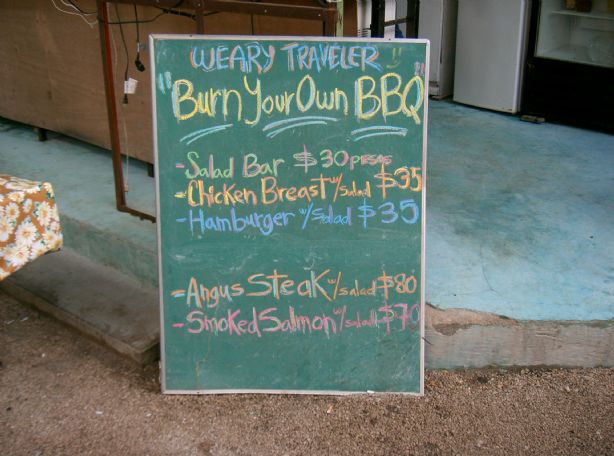 WEARY TRAVELER
"Burn Your Own BBQ"
- Salad Bar $30 pesos
- Chicken Breast w/salad $35
- Hamburger w/salad $35
- Angus Steak w/salad $80
- Smoked Salmon w/salad $70